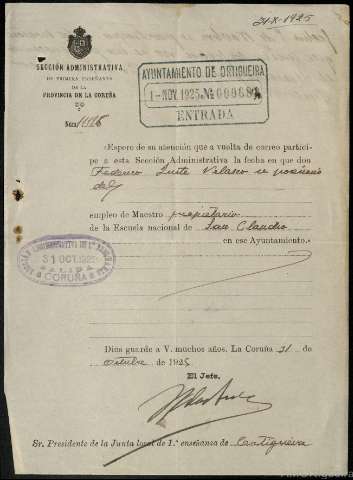 31-X-1925
SECCIÓN ADMINISTRATIVA
DE PRIMERA ENSEÑANZA
DE LA
PROVINCIA DE LA CORUÑA
Núm. 11926
AYUNTAMIENTO DE ORTIGUEIRA
1-NOV. 1925
ENTRADA
«Espero de su atención que a vuelta de correo partici-
pe a esta Sección Administrativa la fecha en que don
Federico Velasco se posesionó
del
empleo de Maestro propietario
de la Escuela nacional de San Claudio
en ese Ayuntamiento.»
SECCIÓN ADMINISTRATIVA DE 1ª
31 OCT. 1925
SALIDA
CORUÑA
Dios guarde a V. muchos años. La Coruña 31 de
octubre de 1925
El Jefe,
Sr. Presidente de la Junta local de 1.ª enseñanza de Ortigueira